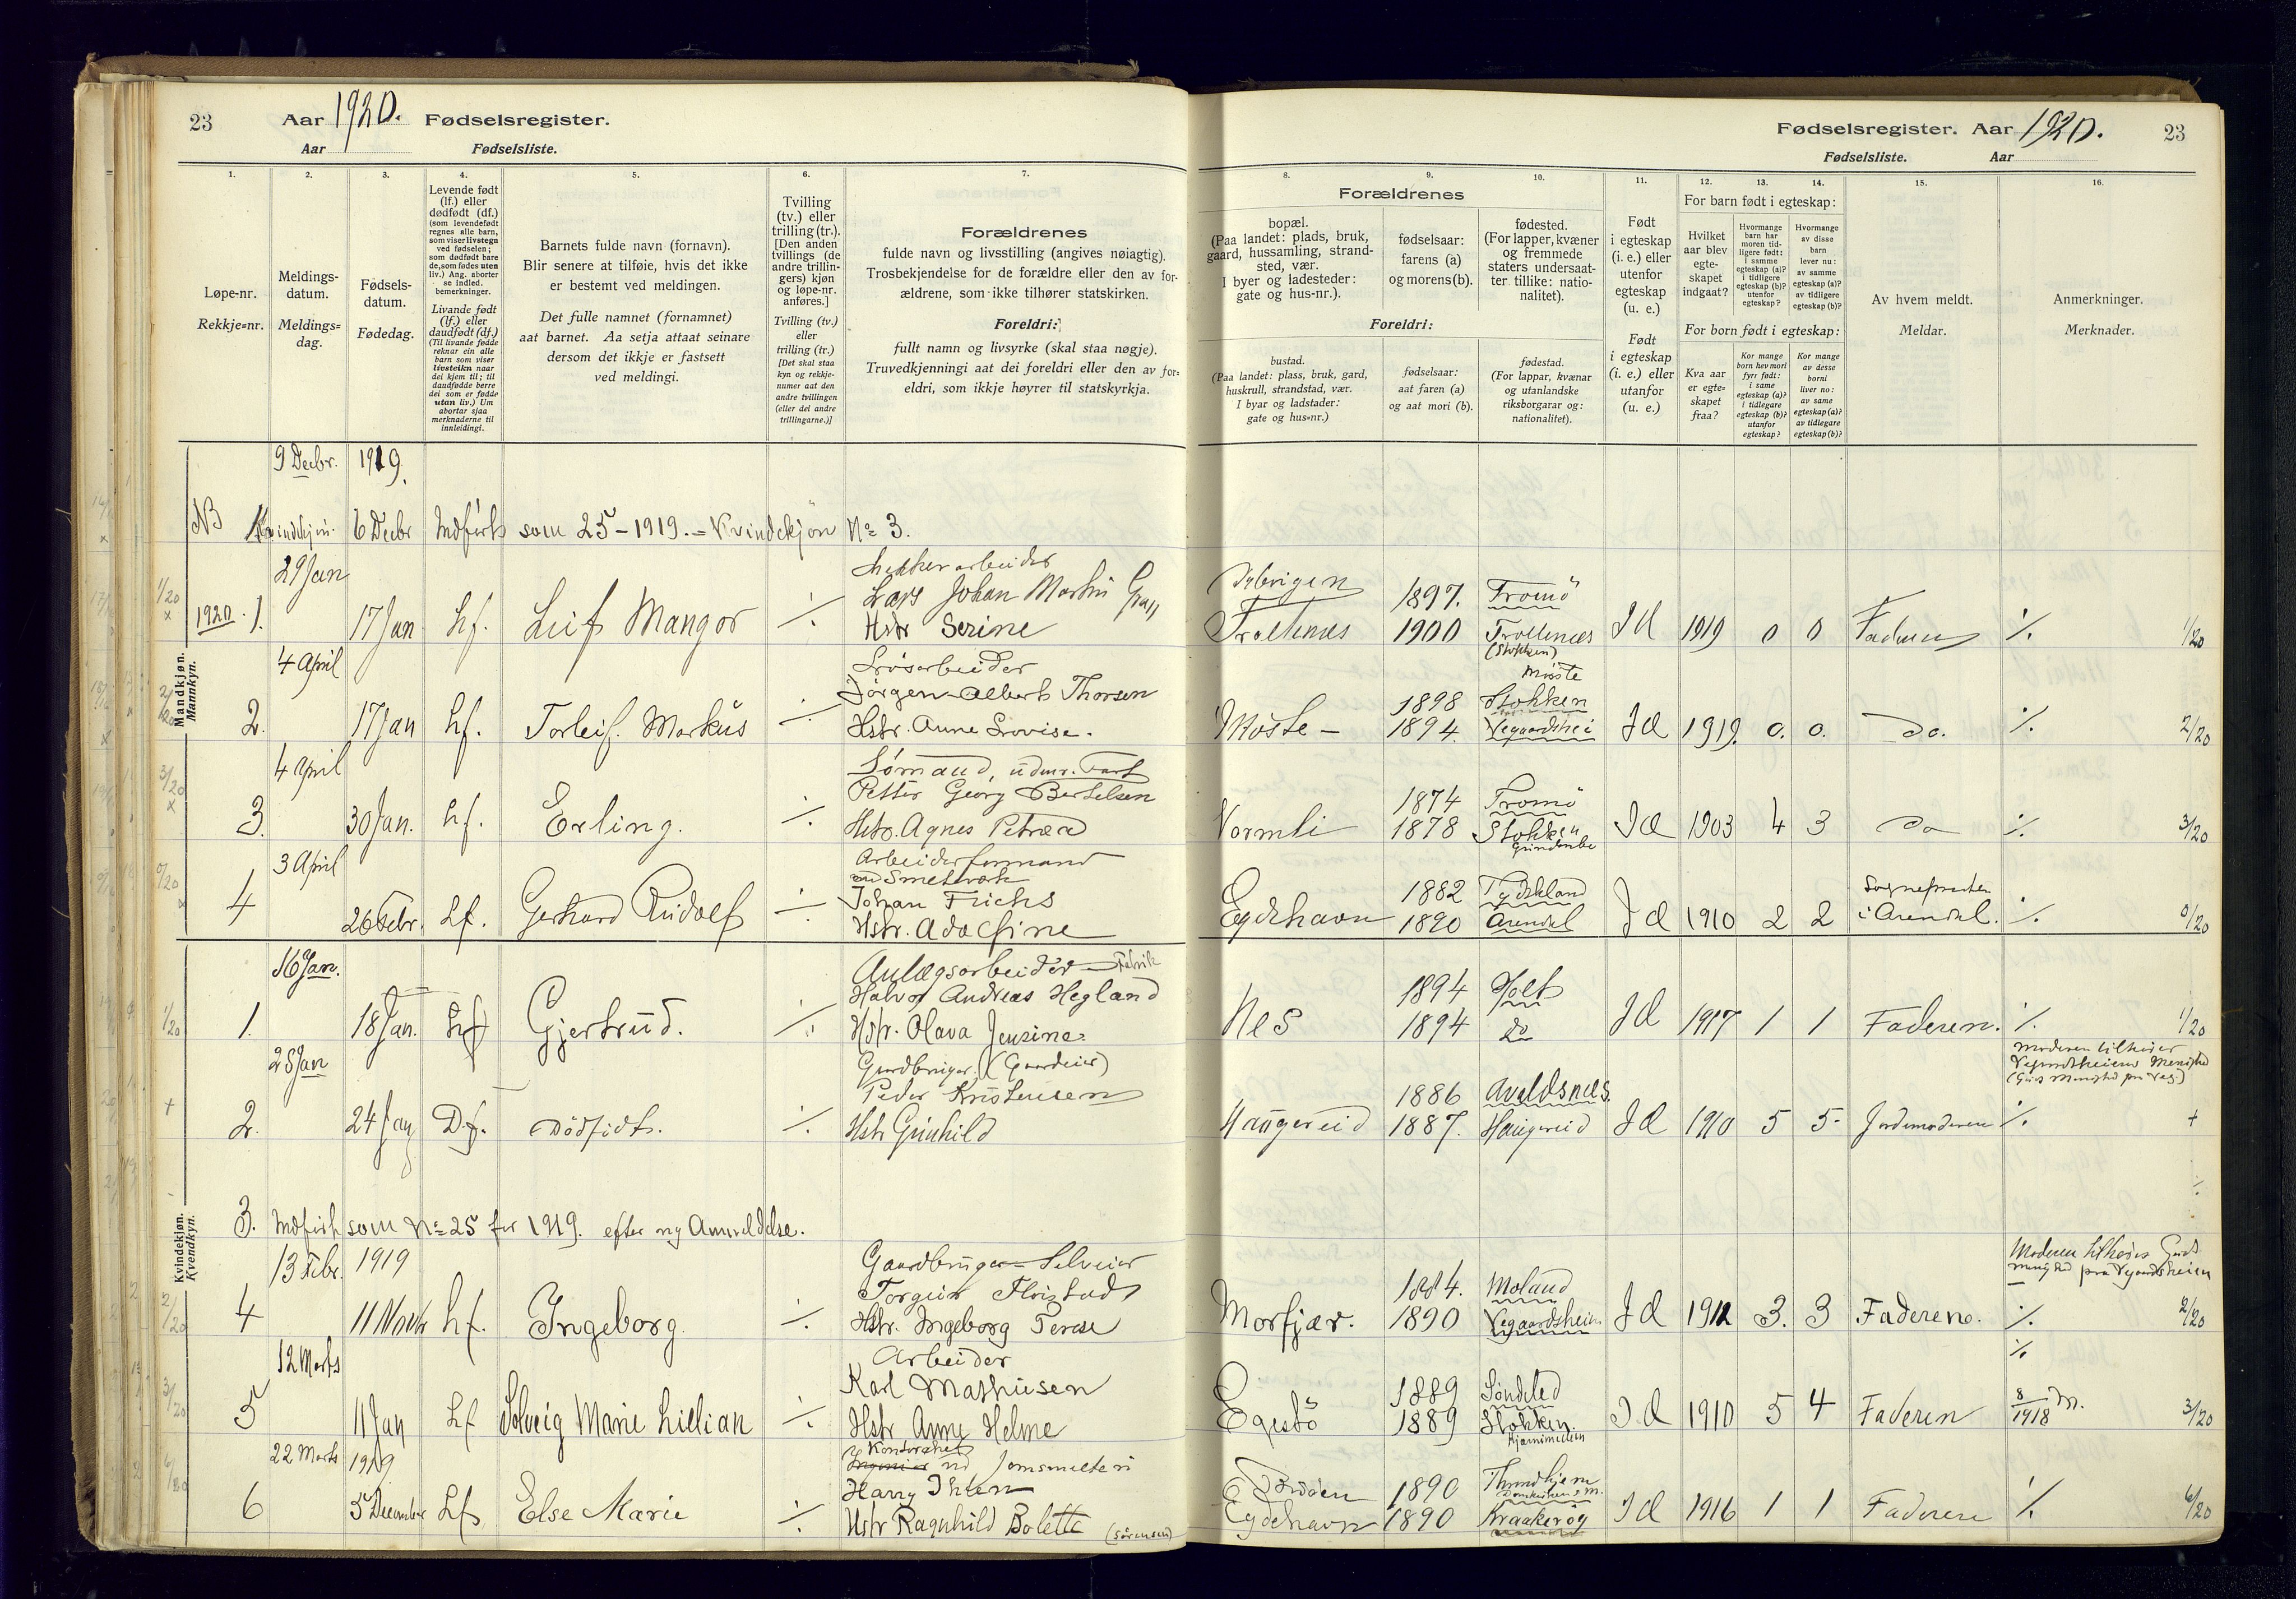 23 Aar 1920. Fødselsregister.
Aar Fødselsliste.
1. 2. 3. 4. 5. 6. 7.
Løpe-nr.
Rekkje=nr.
Meldings-
datum.
Meldings=
dag.
Fødsels-
datum.
Fødedag.
Levende født
(lf.) eller
dødfødt (df.)
(som levendefødt
regnes alle barn,
som viser livstegn
ved fødselen;
som dødfødt bare
de, som fødes uten
liv.) Ang. aborter
se indled.
bemerkninger.
Livande født
(lf.) eller
daudfødt (df.)
(Til livande fødde
reknar ein alle
barn som viser
livsteikn naar
dei kjem til; til
daudfødde berre
dei som er fødde
utan liv.) Um
abortar sjaa
merknaderne til
innleidingi.
Barnets fulde navn (fornavn).
Blir senere at tilføie, hvis det ikke
er bestemt ved meldingen.
Det fulle namnet (fornamnet)
aat barnet. Aa setja attaat seinare
dersom det ikkje er fastsett
ved meldingi.
Tvilling
(tv.) eller
trilling (tr.).
[Den anden
tvillings (de
andre trillin-
gers) kjøn
og løpe-nr.
anføres.]
Tvilling (tv.)
eller
trilling (tr.)
[Det skal staa
kyn og rekkje-
numer aat den
andre tvillingen
(eller dei andre
trillingarne.)]
Forældrenes
fulde navn og livsstilling (angives nøiagtig).
Trosbekjendelse for de forældre eller den av for-
ældrene, som ikke tilhører statskirken.
Foreldri:
fullt namn og livsyrke (skal staa nøgje).
Truvedkjenningi aat dei foreldri eller den av for=
eldri, som ikkje høyrer til statskyrkja.
9 Decbr. 1919.
NB Kvindekjøn. 6 Decbr Indført som 25-1919. = Kvindekjön No 3.
29 Jan
1920. 1. 17 Jan Lf. Leif Mangor ·/·
Lars Johan Martin
Hstr Serine
Mandkjøn.
Mannkyn.
4 April
2. 17 Jan Lf. Torleif. Markus ·/·
Jörgen Albert Thorsen
Hstr. Anne Lovise.
4 April
3. 30 Jan. Lf. Erling. ·/·
Sømand, udenr. Fart
Petter Georg Bertelsen
Hstr. Agnes Petrea
3 April
4 26 Febr. Lf. Gerhard Rudolf ·/·
Arbeiderformand
Smelteverk
Johan Frichs
Hstr. Adolfine
16 Jan.
1. 18 Jan. Lf Gjertrud. ·/·
Anlægsarbeider - Fabrik
Halvor Andreas Hegland
Hstr. Olava Jensine.
25 Jan
2. 24 Jan Df. Dödfödt. ·/·
Gaardbruger. (Gaardeier)
Peder Kristensen
Hstr Gunhild
Kvindekjøn.
Kvendkyn.
3. Indført som No 25 for 1919. efter ny Anmeldelse.
13 Febr. 1919
4 11 Novbr Lf. Ingeborg. ·/·
Gaardbruger - Selveier
Torgeir Flristad
Hstr. Ingeborg Terese
12 Marts
5 11 Jan Lf Solveig Marie Lillian ·/·
Arbeider
Karl Mathisen
Hstr Anne Helme
22 Marts 1919
6 5 December Lf. Else Marie ·/·
Ingeniør ved Jernsmelteri
Harry Ihlen
Hstr Ragnhild Bolette (Sörensen)
Fødselsregister. Aar 1920. 23
Fødselsliste. Aar
8. 9. 10. 11. 12. 13. 14. 15. 16.
Forældrenes
bopæl.
(Paa landet: plads, bruk,
gaard, hussamling, strand-
sted, vær.
I byer og ladesteder:
gate og hus-nr.).
fødselsaar:
farens (a)
og morens (b).
fødested.
(For lapper, kvæner
og fremmede
staters undersaat-
ter tillike: natio-
nalitet).
Foreldri:
bustad.
(Paa landet: plass, bruk, gard,
huskrull, strandstad, vær.
I byar og ladstader:
gate og hus=nr.)
fødselsaar:
aat faren (a)
og aat mori (b).
fødestad.
(For lappar, kvænar
og utanlandske
riksborgarar og:
nationalitet).
Født
i egteskap
(i. e.) eller
utenfor
egteskap
(u. e.)
Født
i egteskap
(i. e.) eller
utanfor
egteskap
(u. e.)
For barn født i egteskap:
Hvilket
aar blev
egte-
skapet
indgaat?
Hvormange
barn har
moren tid-
ligere født:
i samme
egteskap (a)?
i tidligere
egteskap (b)?
utenfor
egteskap?
Hvormange
av disse
barn
lever nu:
av samme
egteskap (a)?
av tidligere
egteskap (b)?
For born født i egteskap:
Kva aar
er egte=
skapet
fraa?
Kor mange
born hev mori
fyrr født:
i same
egteskap (a)?
i tidlegare
egteskap (b)?
utanfor
egteskap?
Kor mange
av desse
borni
liver no:
av same
egteskap (a)?
av tidlegare
egteskap (b)?
Av hvem meldt.
Meldar.
Anmerkninger.
Merknader.
1897. Tromö
1900 Trollenes (Stokken) 1919 0 0 Faderen ·/· 1/20
Möste
1898 Stokken
Möste - 1894. Vegaardshei 1919. 0. 0. Do. ·/· 2/20
1874 Tromö
Vormli 1878 Stokken 1903 4 3 Do ·/· 3/20
1882 Tydskland Sognepresten
Eydehavn 1890 Arendal 1910 2 2 i Arendal. ·/· 0/20
1894 Holt
Nes 1894 Do 1917 1 1 Faderen. ·/· 1/20
Moderen tilhører
Vegaardsheiens Menighed
1886 Avaldsnes.
Haugereid 1887. Haugereid 1910 5 5- Jordmoderen ·/· +
Moderen tilhører Guds
menighed paa Vegaardsheien
1884. Moland
Morfjær. 1890 Vegaardsheien 1912 3. 3 Faderen. ·/· 2/20
·/·
1889 Söndeled
Egestö 1889 Stokken. 1910 5 4 Faderen 8/1918 M. 3/20
1890
Eydehavn 1890 Kraakeröy 1916 1 1 Faderen ·/· 6/20